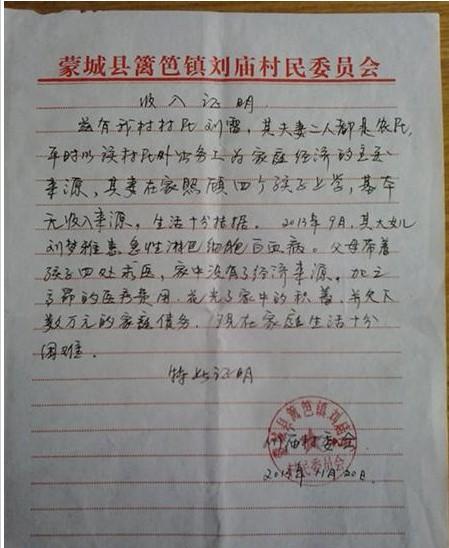 蒙城县篱笆镇刘庙村民委员会
收入证明
兹有我村村民刘雷，其夫妻二人都是农民，
平时以该村民外出务工为家庭经济的主要
来源，其妻在家照顾四个孩子上学，基本
无收入来源，生活十分拮据。2013年9月，其大女儿
刘梦雅患急性淋巴细胞白血病。父母带着
孩子四处求医，家中没有了经济来源。加之
高昂的医疗费用，花光了家中的积蓄，并欠下
数万元的家庭债务，现在家庭生活十分
困难。
特此证明
蒙城县篱笆镇刘庙村民委员会
刘庙村委会
11月20日